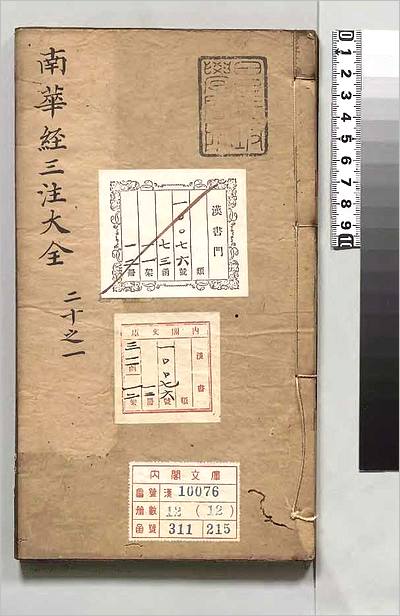 南華経三注大全
二十之一
漢書門
類
一〇〇七六號
七三函
一架
一二冊
内閣文庫
漢書
類
一〇〇七六號
一二冊
三一一函
架
内閣文庫
番號 漢 10076
冊數 12 (12)
函號 311 215
1 2 3 4 5 6 7 8 9 10